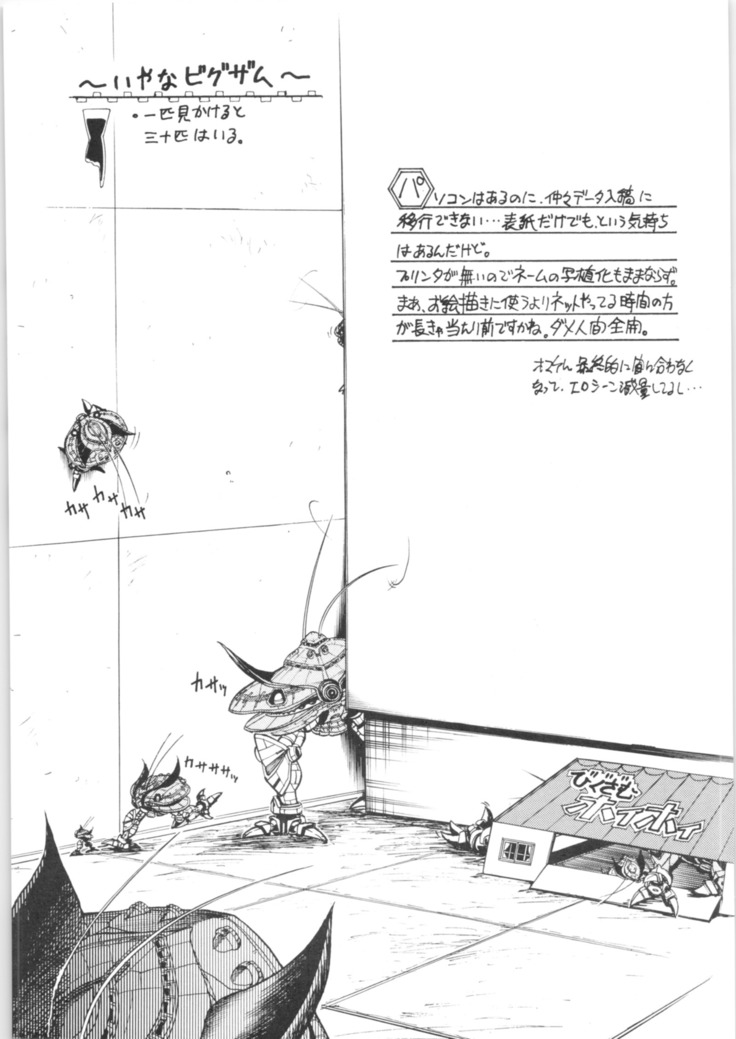 ～いやなビグザム～
・一匹見かけると
三十匹はいる。
パソコンはあるのに、仲々データ入稿に
移行できない…表紙だけでも、という気持ち
はあるんだけど。
プリンタが無いのでネームの写植化もままならず。
まぁ、お絵描きに使うよりネットやってる時間の方
が長きゃ当たり前ですかね。ダメ人間全開。
最終的に間に合わなく
なって、エロシーン減量してるし…
カサ カサ カサ
カサッ
カサササッ
びぐざむ
ホイホイ